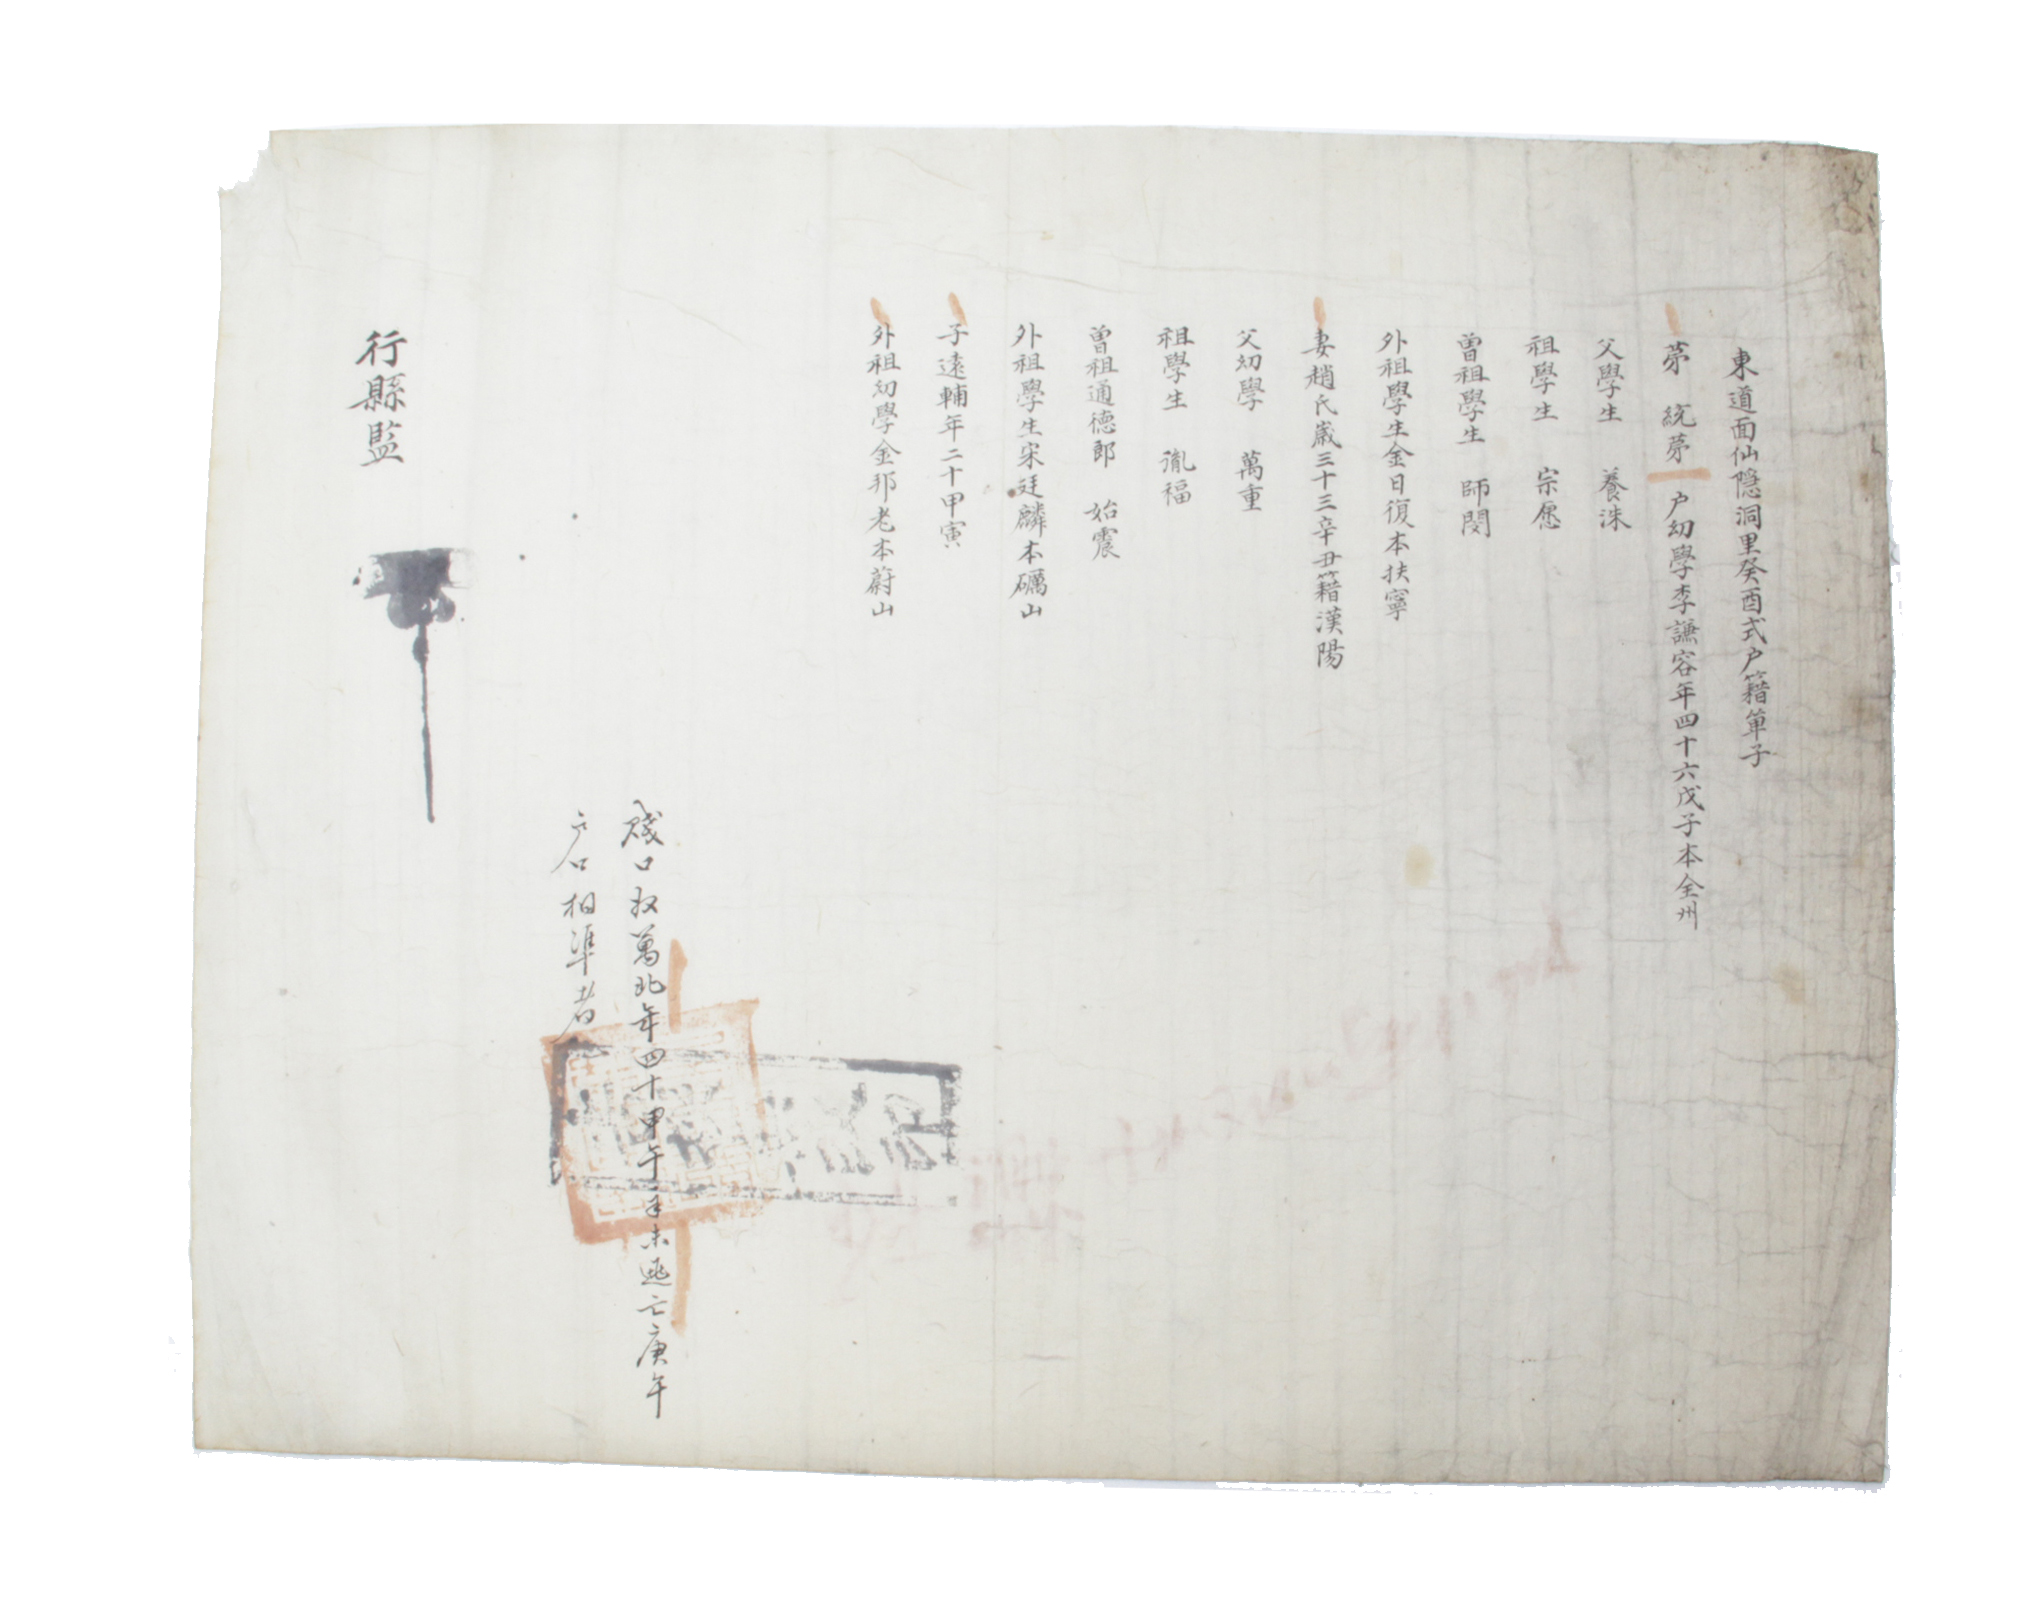 東道面仙隱洞里癸酉式户籍單子
苐 統苐 户幼學李謙容年四十六戊子本全州
父學生 養洙
祖學生 宗愿
曾祖學生 師閔
外祖學生金日復本扶寧
妻趙氏歲三十三辛丑籍漢陽
父幼學 萬重
祖學生 胤福
曾祖通德郎 始震
外祖學生宋廷麟本礪山
子遠輔年二十甲寅
外祖幼學金邦老本蔚山
賤口奴萬北年四十甲午 等未逃亡庚午
户口相準者
行縣監